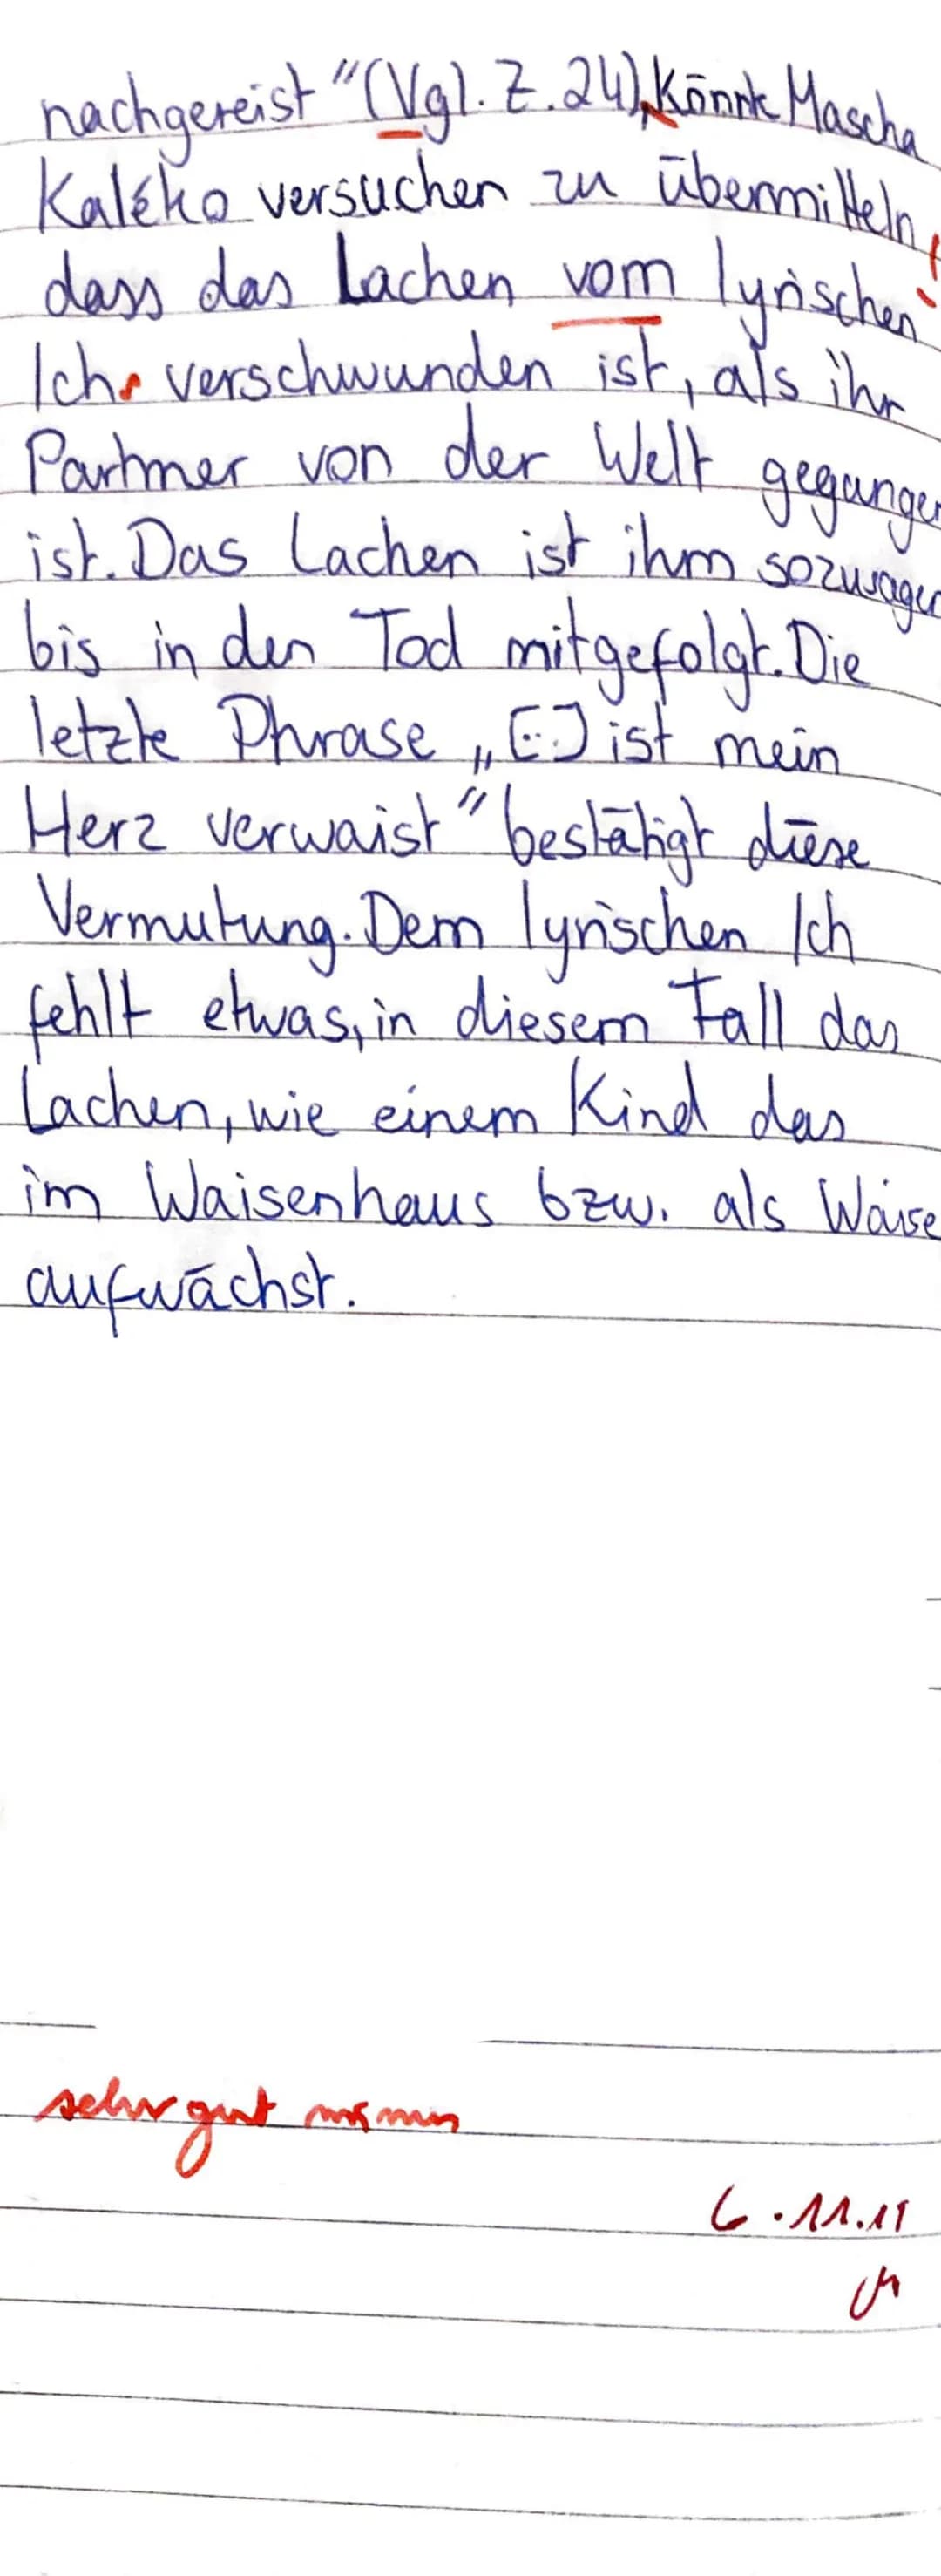 nachgereist" (Vgl. Z. 24), Könnte Mascha
Kaléko versuchen zu übermitteln,
dass das Lachen vom lyrischen
Ich verschwunden ist, als ihr
Partner von der Welt gegangen
ist. Das Lachen ist ihm sozusagen
bis in den Tod mitgefolgt. Die
letzte Phrase „[...] ist mein
Herz verwaist" bestätigt diese
Vermutung. Dem lyrischen Ich
fehlt etwas, in diesem Fall das
Lachen, wie einem Kind das
im Waisenhaus bzw. als Waise
aufwächst.
sehr gut
6.11.11